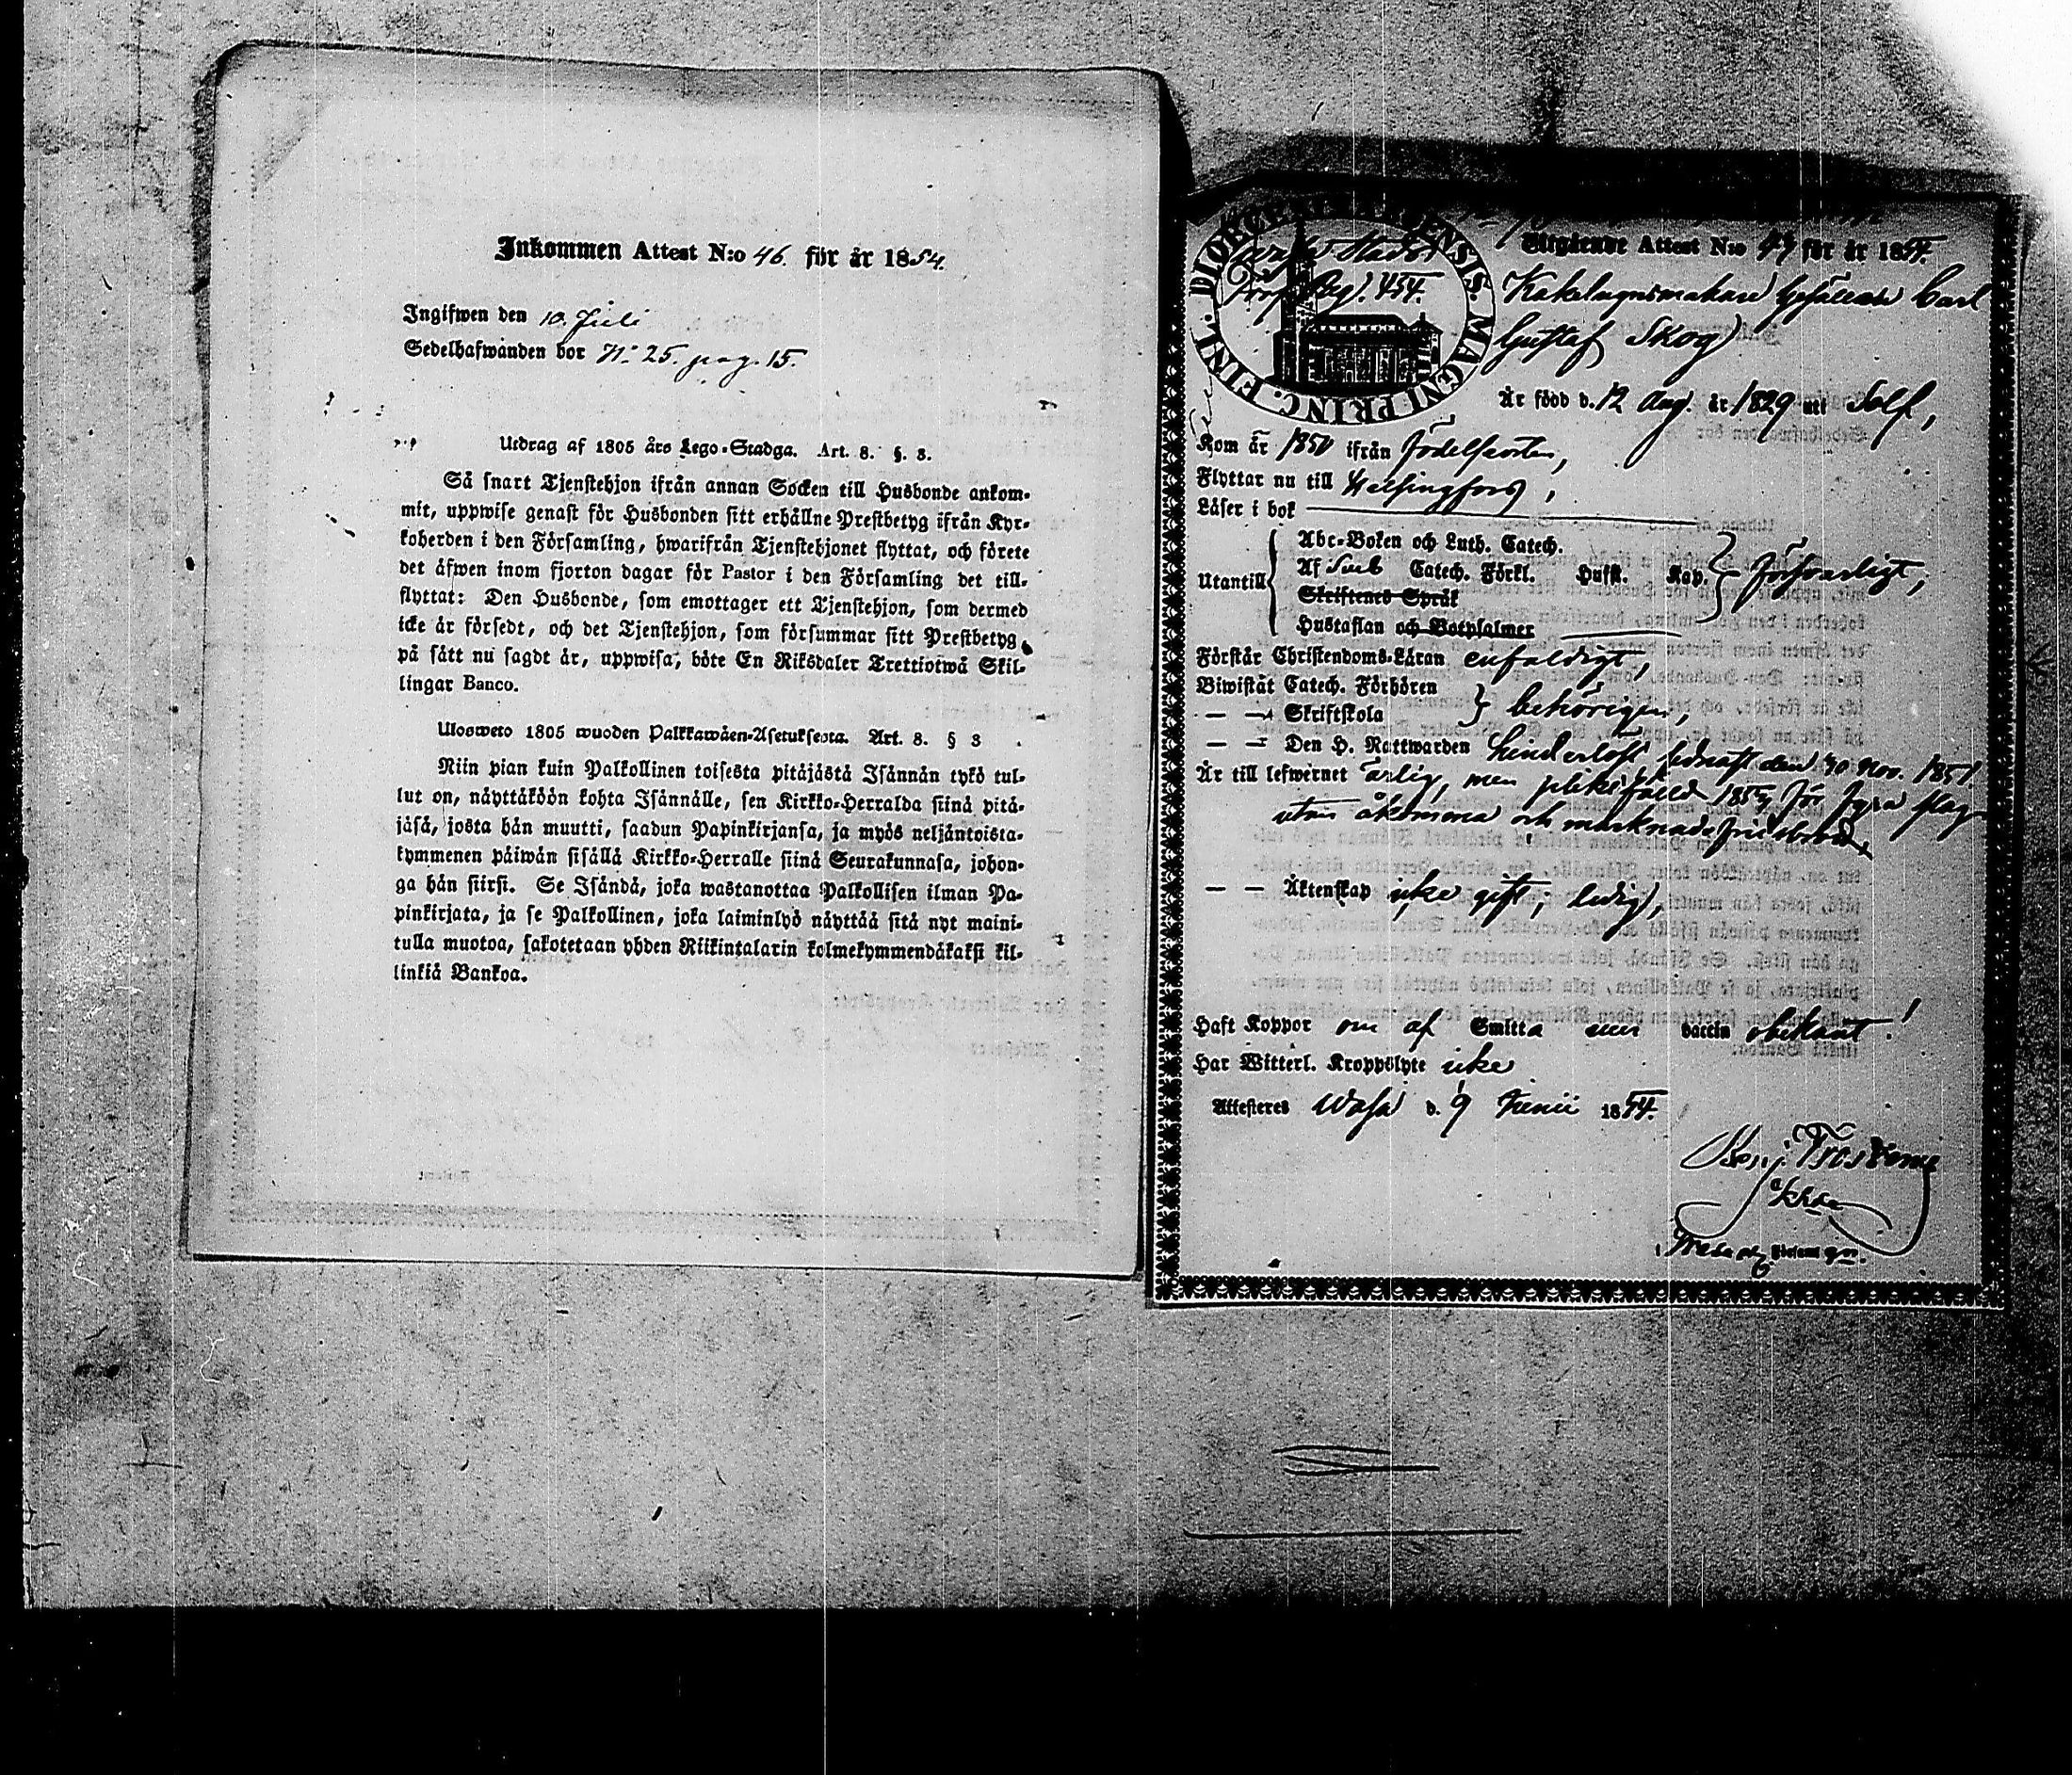 Inkommen Attest N:o 46. för år 1854.
Ingifwen den 10. Juli
Sedelhafwanden bor N:o 25. pag. 15.
Utdrag af 1805 års Lego-Stadga. Art. 8. §. 3.
Så snart Tjenstehjon ifrån annan Socken till Husbonde ankom-
mit, uppwise genast för Husbonden sitt erhållne Prestbetyg ifrån Kyr-
koherden i den Församling, hwarifrån Tjenstehjonet flyttat, och förete
det äfwen inom fjorton dagar för Pastor i den Församling det till-
flyttat: Den Husbonde, som emottager ett Tjenstehjon, som dermed
icke är försedt, och det Tjenstehjon, som försummar sitt Prestbetyg
på sätt nu sagdt är, uppwisa, böte En Riksdaler Trettiotwå Skil-
lingar Banco.
Ulosweto 1805 wuoden Palkkawäen-Asetuksesta. Art. 8. § 3
Niin pian kuin Palkollinen toisesta pitäjästä Isännän tykö tul-
lut on, näyttäköön kohta Isännälle, sen Kirkko-Herralda siinä pitä-
jäsä, josta hän muutti, saadun Papinkirjansa, ja myös neljäntoista-
kymmenen päiwän sisällä Kirkko-Herralle siinä Seurakunnasa, johon-
ga hän siirsi. Se Isändä, joka wastanottaa Palkollisen ilman Pa-
pinkirjata, ja se Palkollinen, joka laiminlyö näyttää sitä nyt maini-
tulla muotoa, sakotetaan yhden Riikintalarin kolmekymmendäkaksi kil-
linkiä Bankoa.
DIOECES. MAGNI PRINC. FINL.
Utgående Attest N:o för år 1854.
Kakelugnsmakare Gesällen Carl
Gustaf Skog
Är född d. 12 Aug. år 1829 uti Solf,
Kom år 1850 ifrån födelseorten,
Flyttar nu till Helsingfors,
Läser i bok
Utantill
Abc-Boken och Luth. Catech.
Af Catech. Förkl. Husft. Kap.
försvarligt,
Skriftenes Språk
Hustaflan och Botpsalmer
Förstår Christendoms-Läran enfaldigt,
Biwiståt Catech. Förhören
— — Skriftskola } behörigen,
— — Den H. Nattwarden sednast den 30 Nov. 1851.
Är till lefwernet ärlig, men pliktfälld för fyra slag
utan åkomma och marknadsfridsbrott.
— — Äktenskap icke gift, ledig,
Haft Koppor om af Smitta eller vaccin obekant!
Har Witterl. Kroppslyte icke
Attesteras Wasa d. 9 Junii 1854.